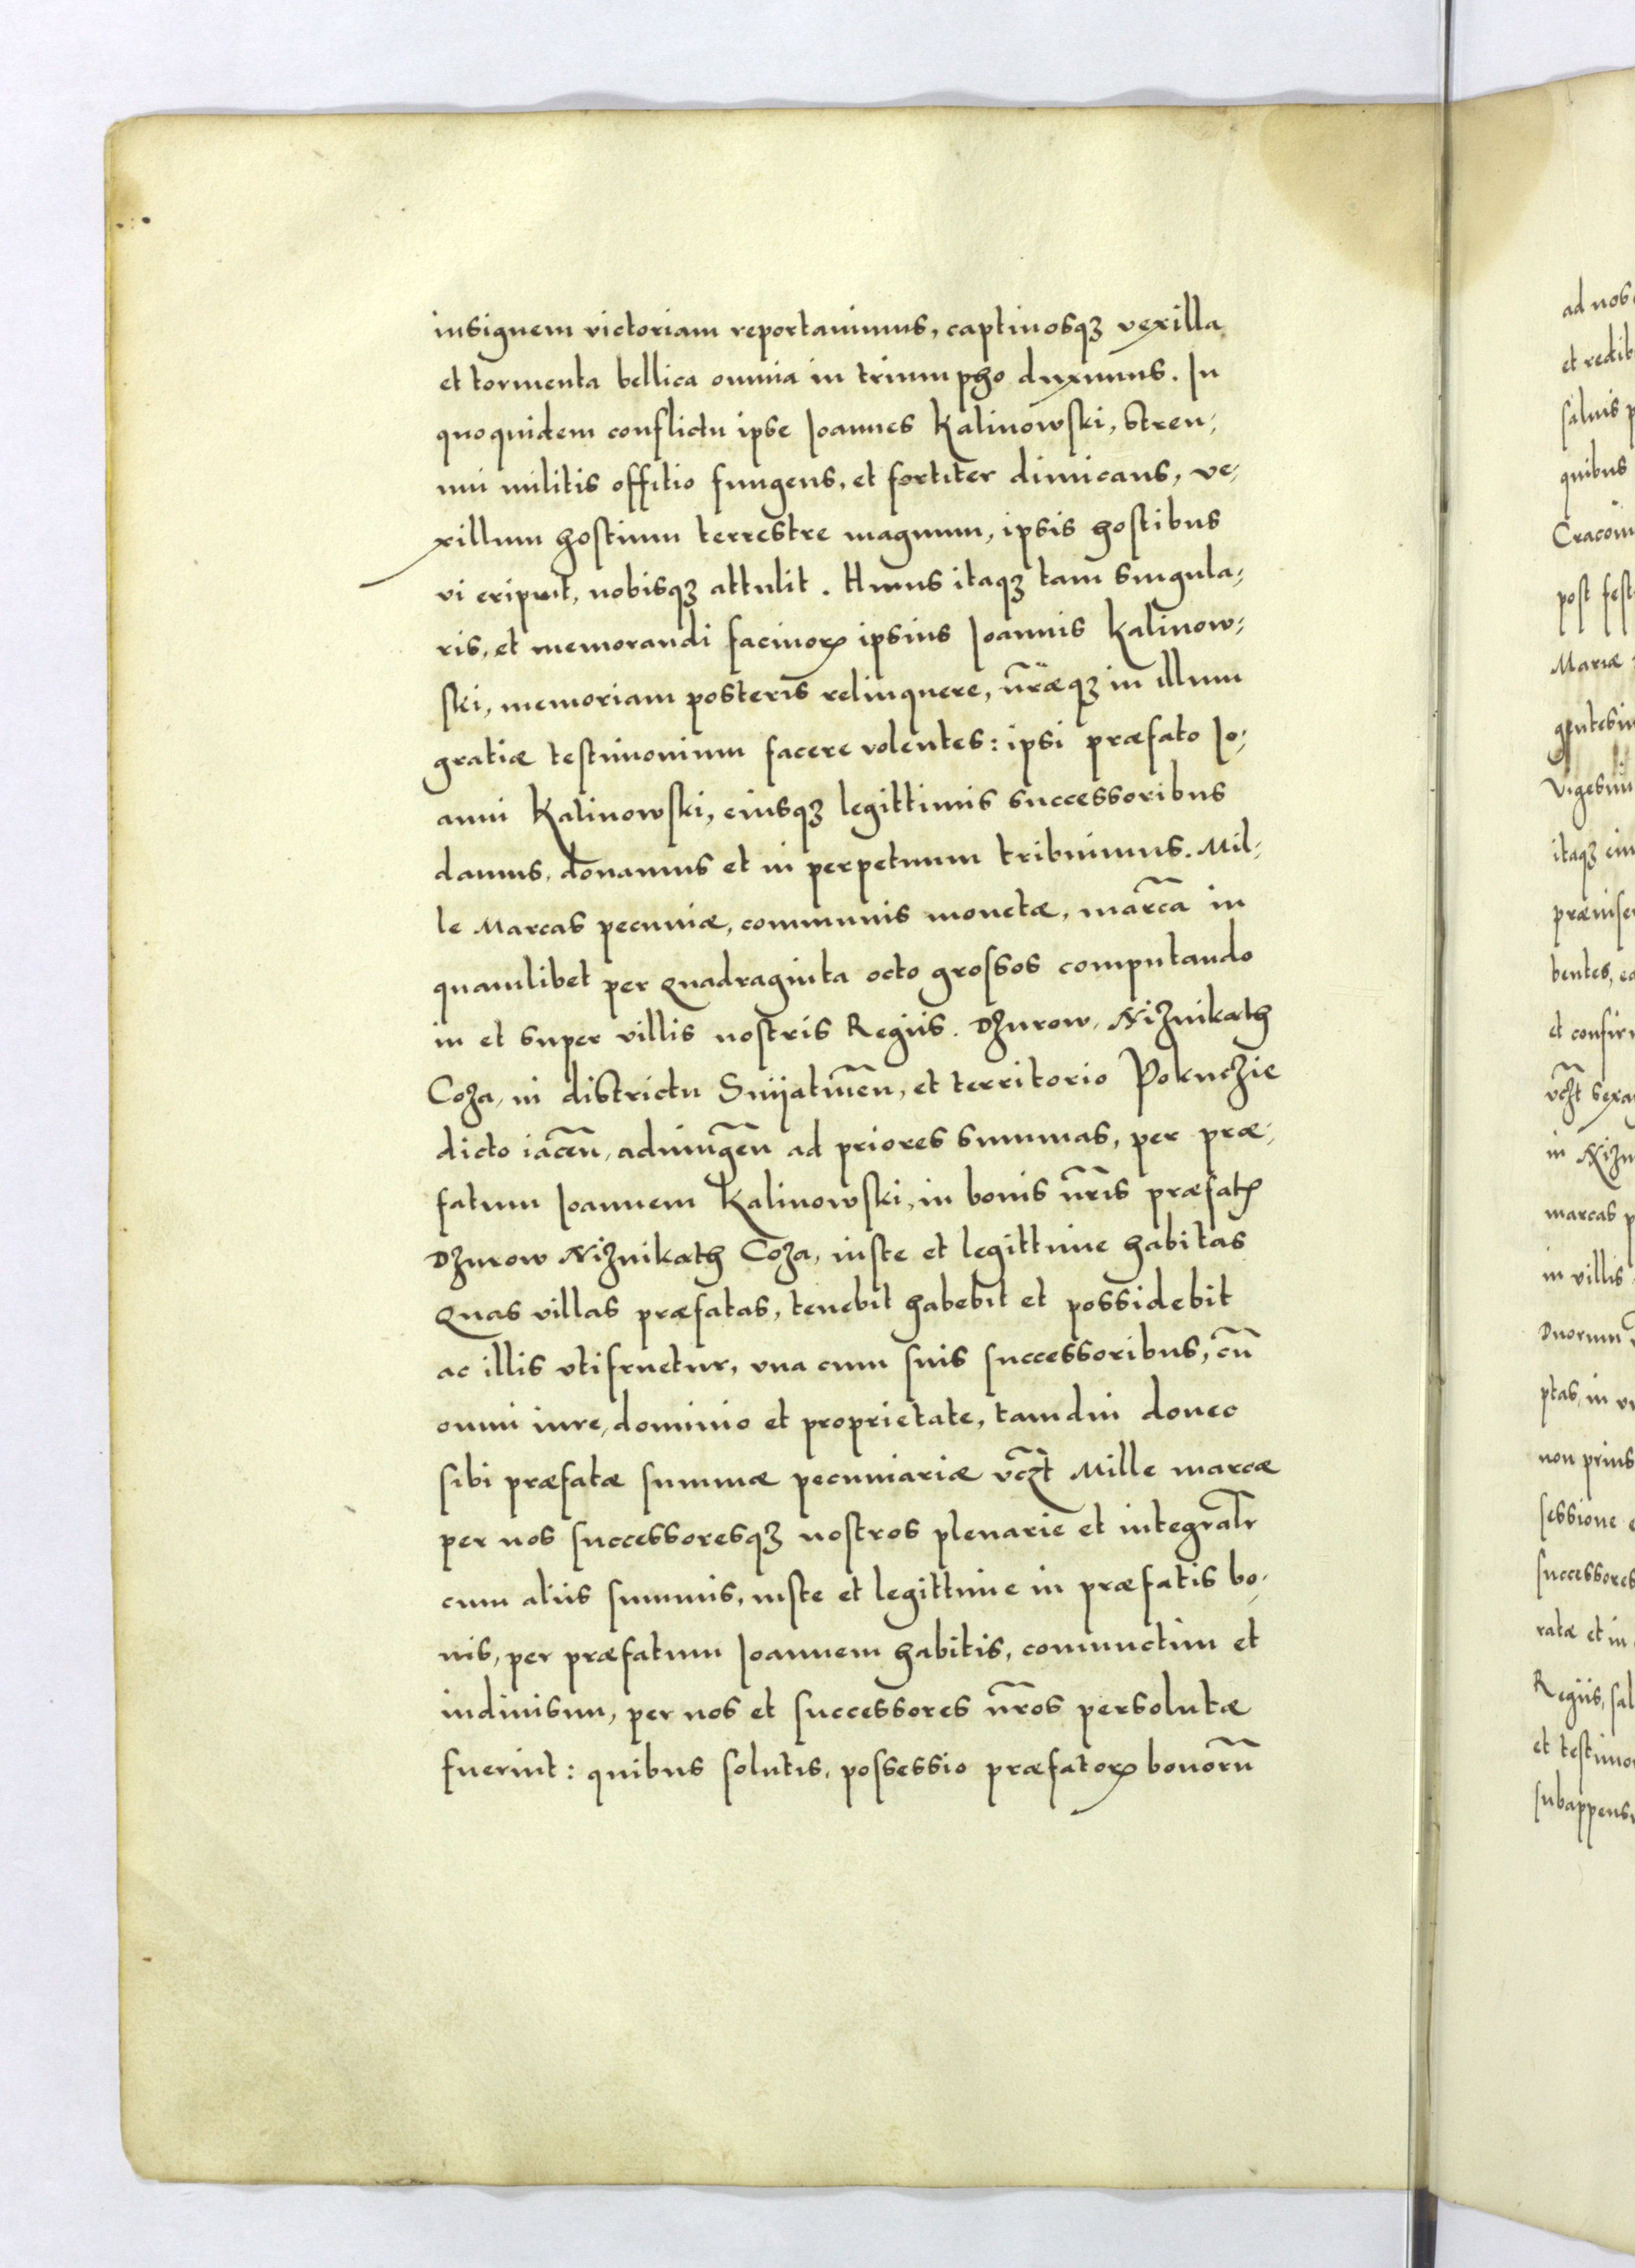 insignem victoriam reportauimus, captiuosqꝫ vexilla
et tormenta bellica omnia in triumpho duximus. In
quo quidem conflictu ipse Ioannes Kalinowski, stren,
nui militis offitio fungens, et fortiter dimicans, ve,
xillum hostium terrestre magnum, ipsis hostibus
vi eripuit, nobisqꝫ attulit. Huius itaqꝫ tam singula,
ris, et memorandi facinorꝝ ipsius Ioannis Kalinow,
ski, memoriam posteris relinquere, nr̃æqꝫ in illum
gratiæ testimonium facere volentes: ipsi præfato Io,
anni Kalinowski, eiusqꝫ legittimis successoribus
damus, donamus et in perpetuum tribuimus. Mil,
le Marcas pecuniæ, communis monetæ, marc̃a in
quamlibet per Quadraginta octo grossos computando
in et super villis nostris Regiis. Dzurow, Niznikath
Coza, in districtu Snijatineñ, et territorio Pokuczie
dicto iaceñ, adiungeñ ad priores summas, per præ,
fatum Ioannem Kalinowski, in bonis nr̃is præfatꝝ
Dzurow Niznikath Coza, iuste et legittime habitas
Quas villas præfatas, tenebit habebit et possidebit
ac illis vtifruetur, vna cum suis successoribus, cũ
omni iure, dominio et proprietate, tamdiu donec
sibi præfatæ summæ pecuniariæ vcꝫt Mille marcæ
per nos successoresqꝫ nostros plenarie et integralr̃
cum aliis summis, iuste et legittime in præfatis bo,
nis, per præfatum Ioannem habitis, coniunctim et
indiuisim, per nos et successores nr̃os persolutæ
fuerint: quibus solutis, possessio præfatorꝝ bonorũ
ad nos
et redib
saluis p
quibus
Cracoui
post fest
Mariæ
gentesim
Vigesim
itaqꝫ
præinser
bentes,
et confir
vcꝫt sexa
in Nizn
marcas p
in villis
Duorum
ptas, in
non prius
sessione
successores
ratæ et in
Regiis, sal
et testimo
subappens